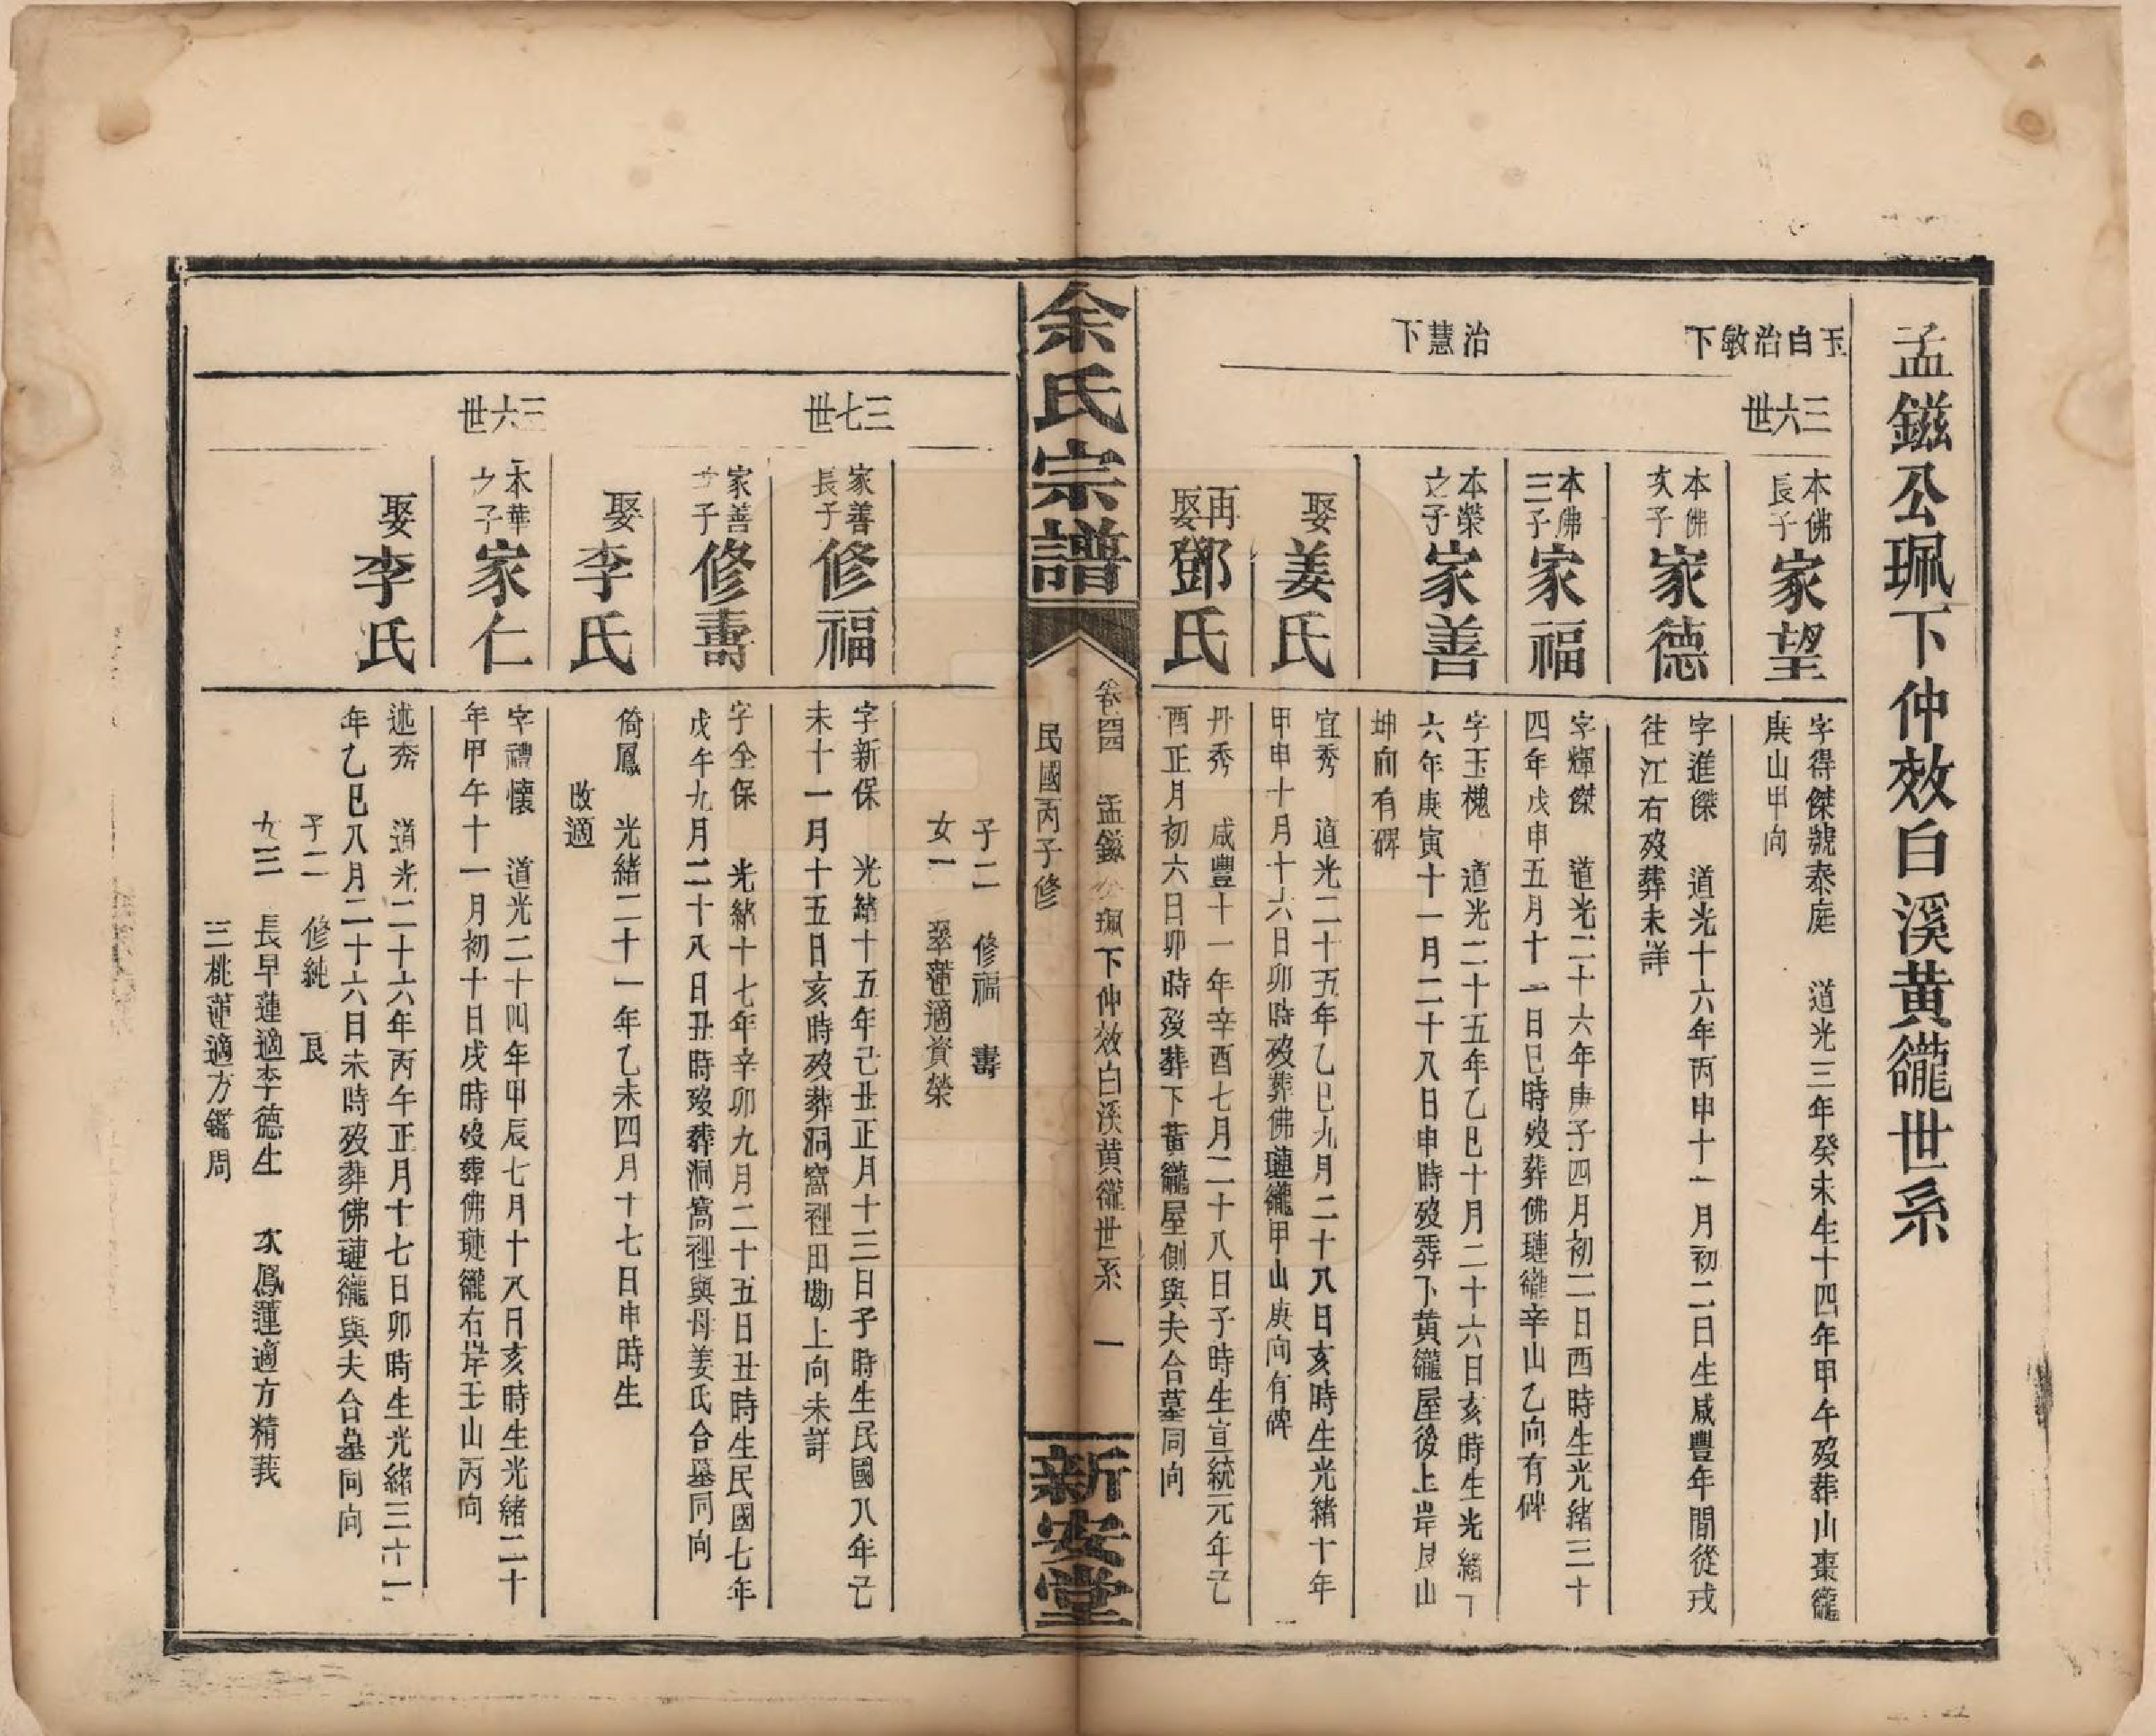 孟鎡公珮下仲效白溪黄徿世系
玉白治敏下
三六世
本佛長子 家望
字得傑號泰庭 道光三年癸未生十四年甲午歿葬山棗徿
庚山甲向
本佛次子 家德
字進傑 道光十六年丙申十一月初二日生咸豐年間從戎
往江右歿葬未詳
本佛三子 家福
字輝傑 道光二十六年庚子四月初二日酉時生光緒三十
四年戊申五月十一日巳時歿葬佛璉徿辛山乙向有碑
治慧下
本榮之子 家善
字玉槐 道光二十五年乙巳十月二十六日亥時生光緒十
六年庚寅十一月二十八日申時歿葬下黄徿屋後上岸艮山
坤向有碑
娶姜氏
宜秀 道光二十五年乙巳九月二十八日亥時生光緒十年
甲申十月十六日卯時歿葬佛璉徿甲山庚向有碑
再娶鄧氏
丹秀 咸豐十一年辛酉七月二十八日子時生宣統元年己
酉正月初六日卯時歿葬下黄徿屋側與夫合墓同向
余氏宗譜
卷四 孟鎡公珮下仲效白溪黄徿世系 一
民國丙子修
新安堂
子二 修福 壽
女一 翠蓮適資榮
三七世
家善長子 修福
字新保 光緒十五年己丑正月十三日子時生民國八年己
未十一月十五日亥時歿葬洞窩裡田墈上向未詳
家善次子 修壽
字全保 光緒十七年辛卯九月二十五日丑時生民國七年
戊午九月二十八日丑時歿葬洞窩裡與母姜氏合墓同向
娶李氏
倚鳳 光緒二十一年乙未四月十七日申時生
改適
三六世
本華之子 家仁
字禮懷 道光二十四年甲辰七月十八日亥時生光緒二十
年甲午十一月初十日戌時歿葬佛璉徿右岸壬山丙向
娶李氏
述奔 道光二十六年丙午正月十七日卯時生光緒三十一
年乙巳八月二十六日未時歿葬佛璉徿與夫合墓同向
子二 修純 良
女三 長早蓮適李德生 次鳳蓮適方精莪
三桃蓮適方鑑周